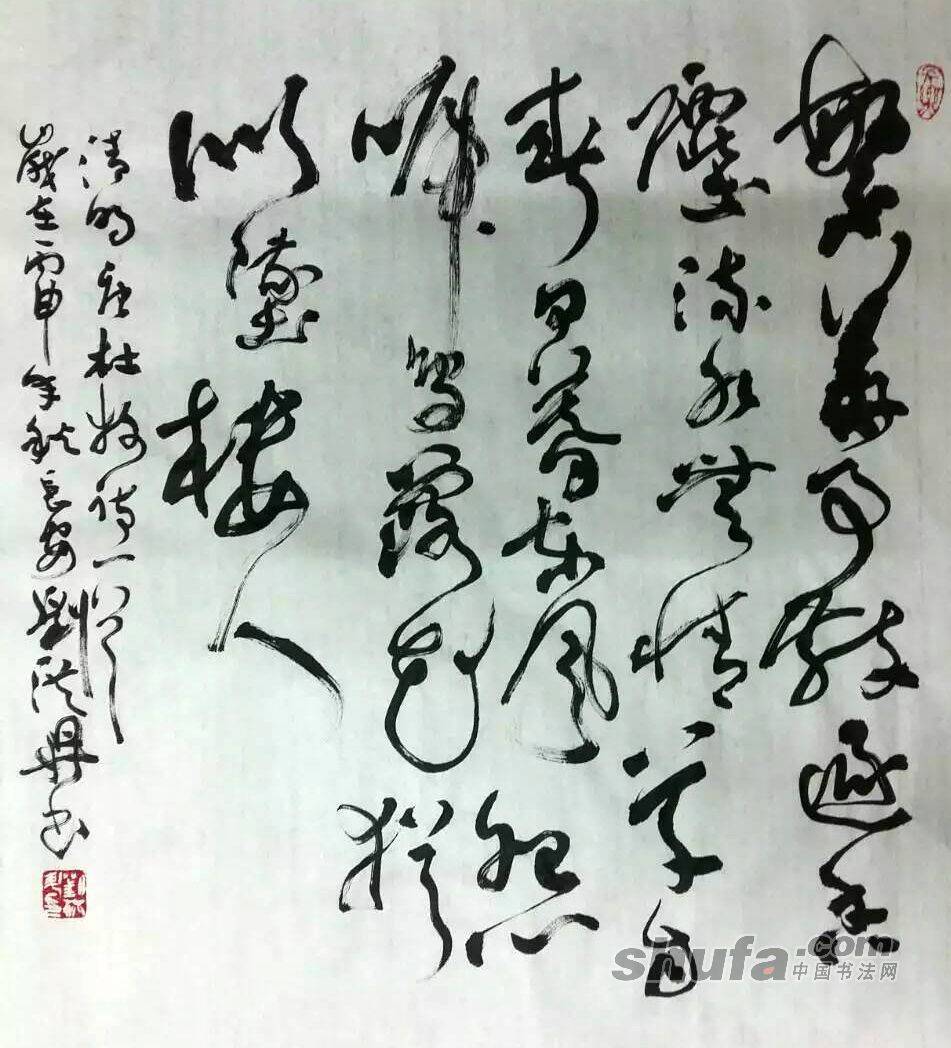 繁華事散逐香
塵流水無情草自
春日暮東風怨
啼鳥落花猶
似墜樓人
杜牧詩一首
歲在丙申年秋長安劉洪書
shufa.com
中国书法网